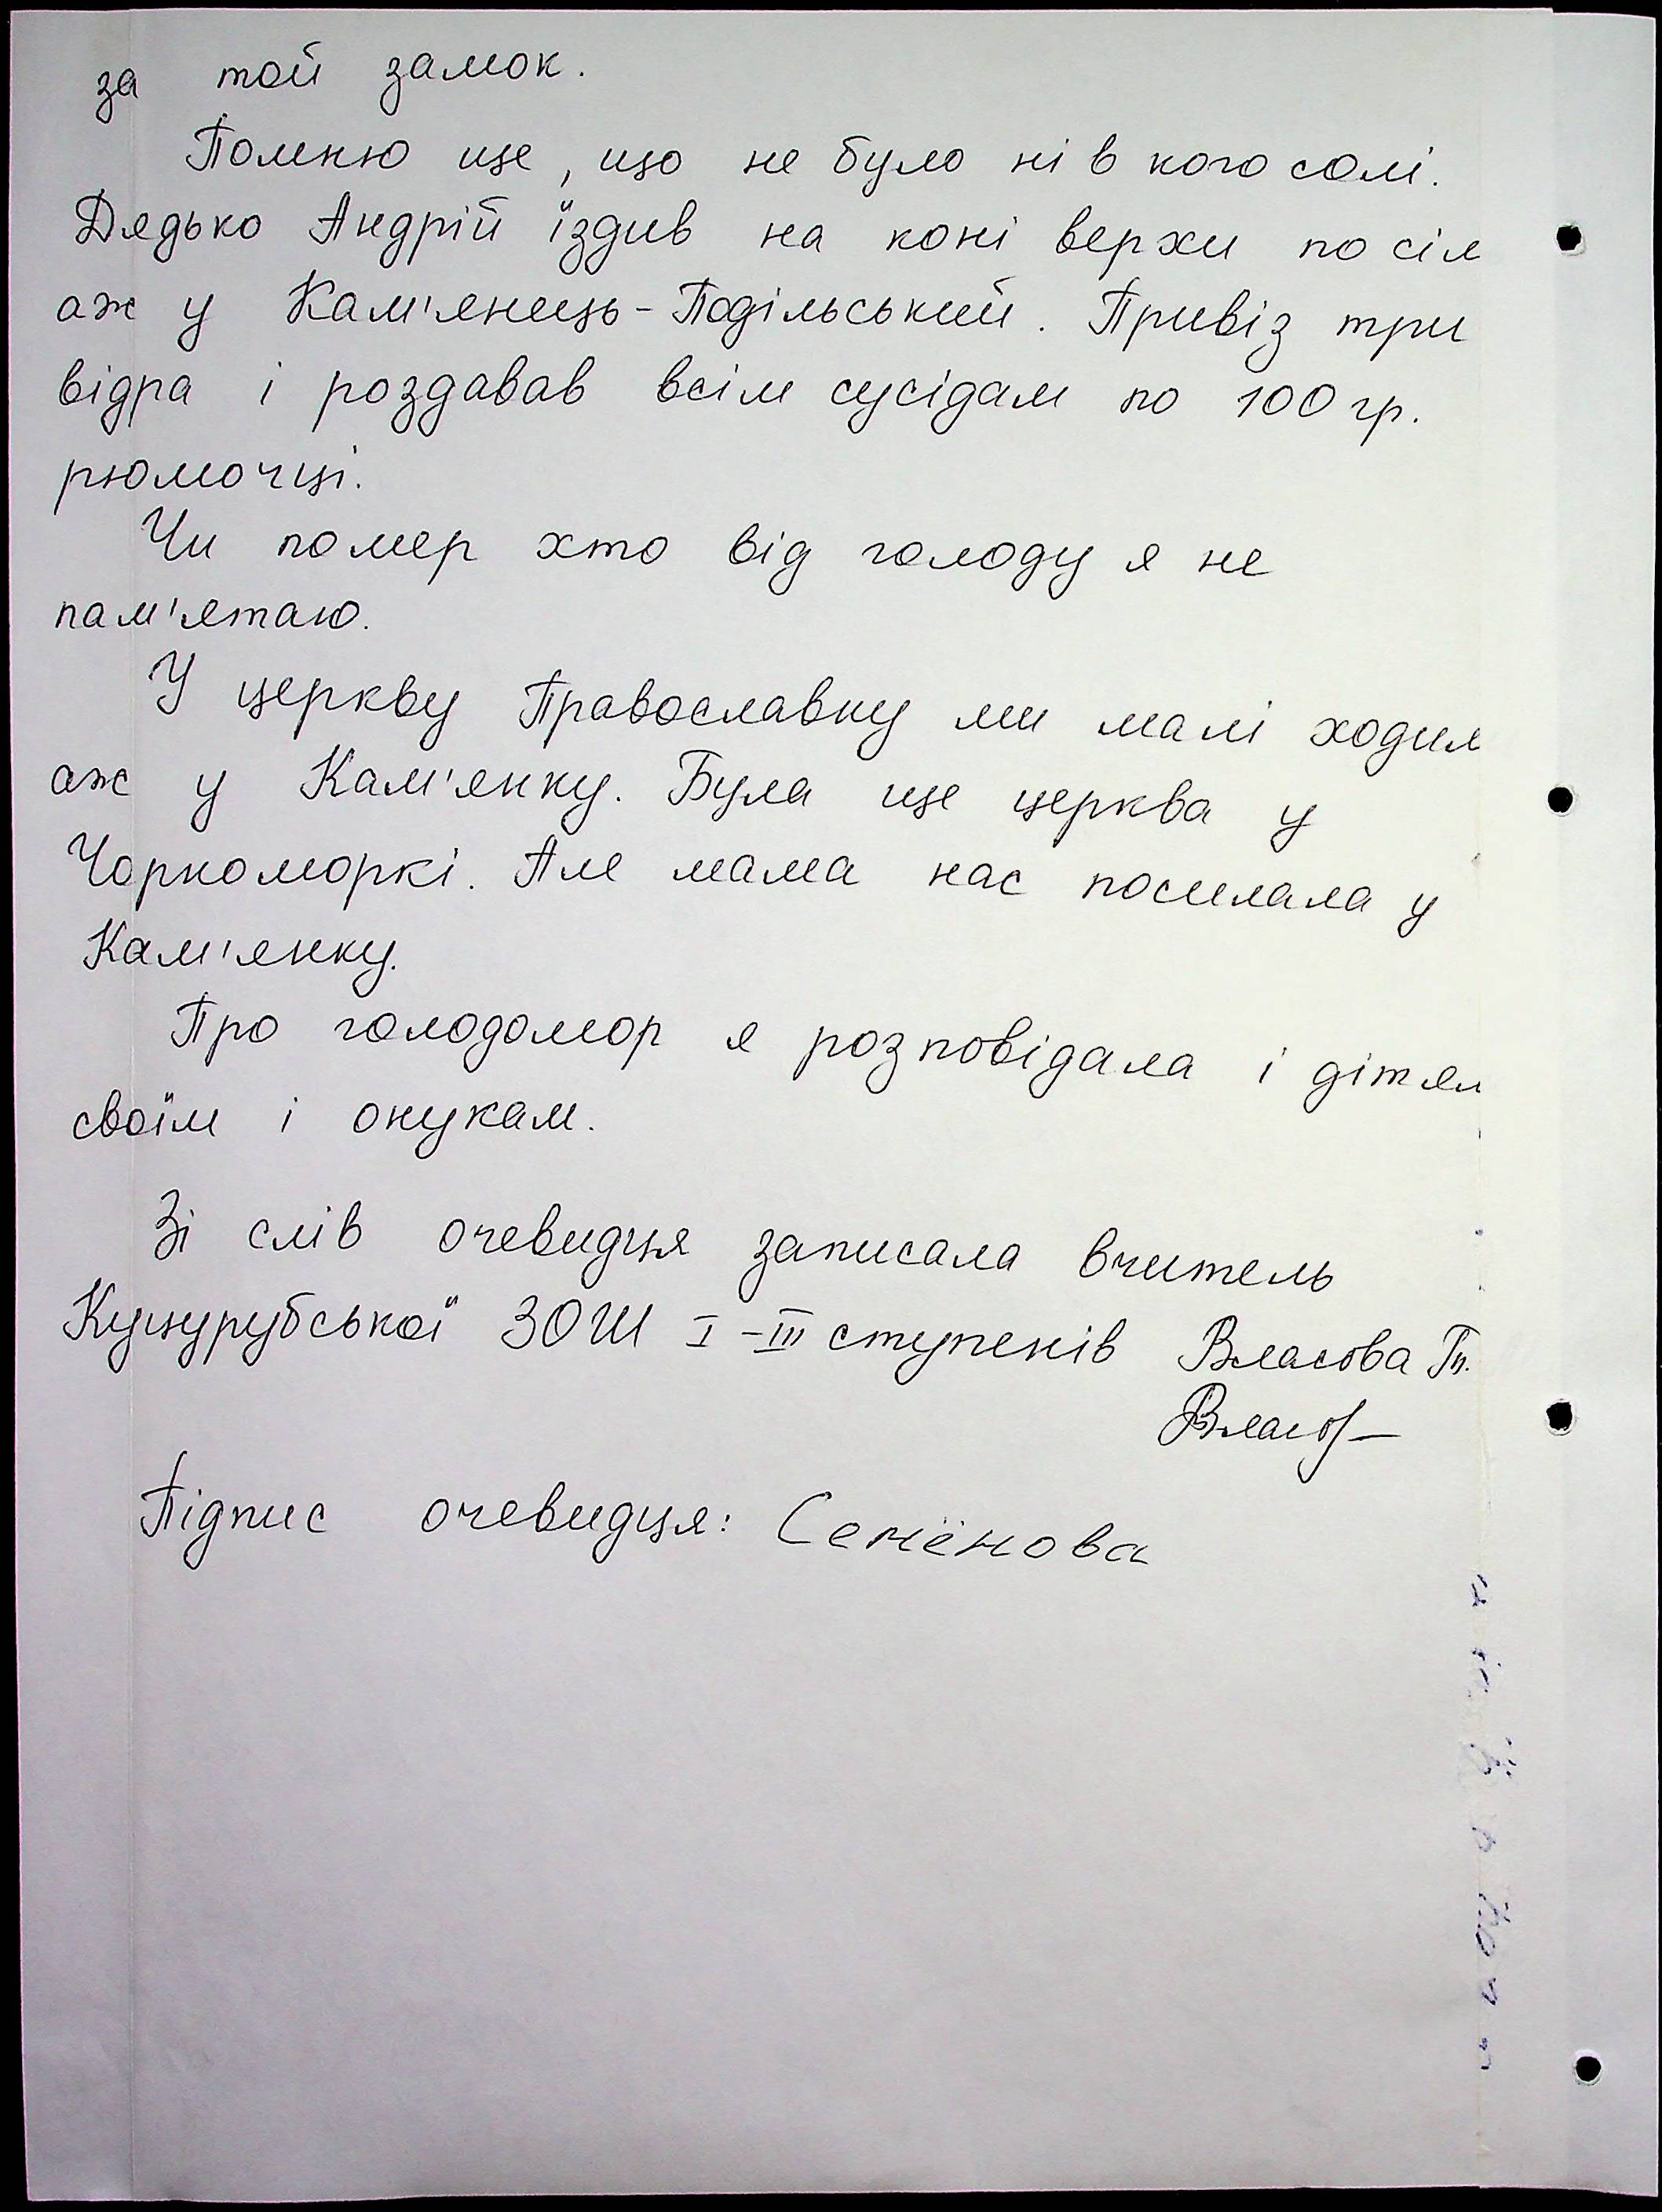 за той замок.
Помню ще, що не було ні в кого солі.
Дядько Андрій їздив на коні верхи по сіл
аж у Кам'янець-Подільський. Привіз три
відра і роздавав всім сусідам по 100 гр.
рюмочці.
Чи помер хто від голоду я не
пам'ятаю.
У церкву Православну ми малі ходил
аж у Кам'янку. Була ще церква у
Чорноморкі. Але мама нас посилала у
Кам'янку.
Про голодомор я розповідала і дітям
своїм і онукам.
Зі слів очевидця записала вчитель
Куцурубської ЗОШ I-III ступенів Власова Т.П.
Підпис очевидця: Семёнова